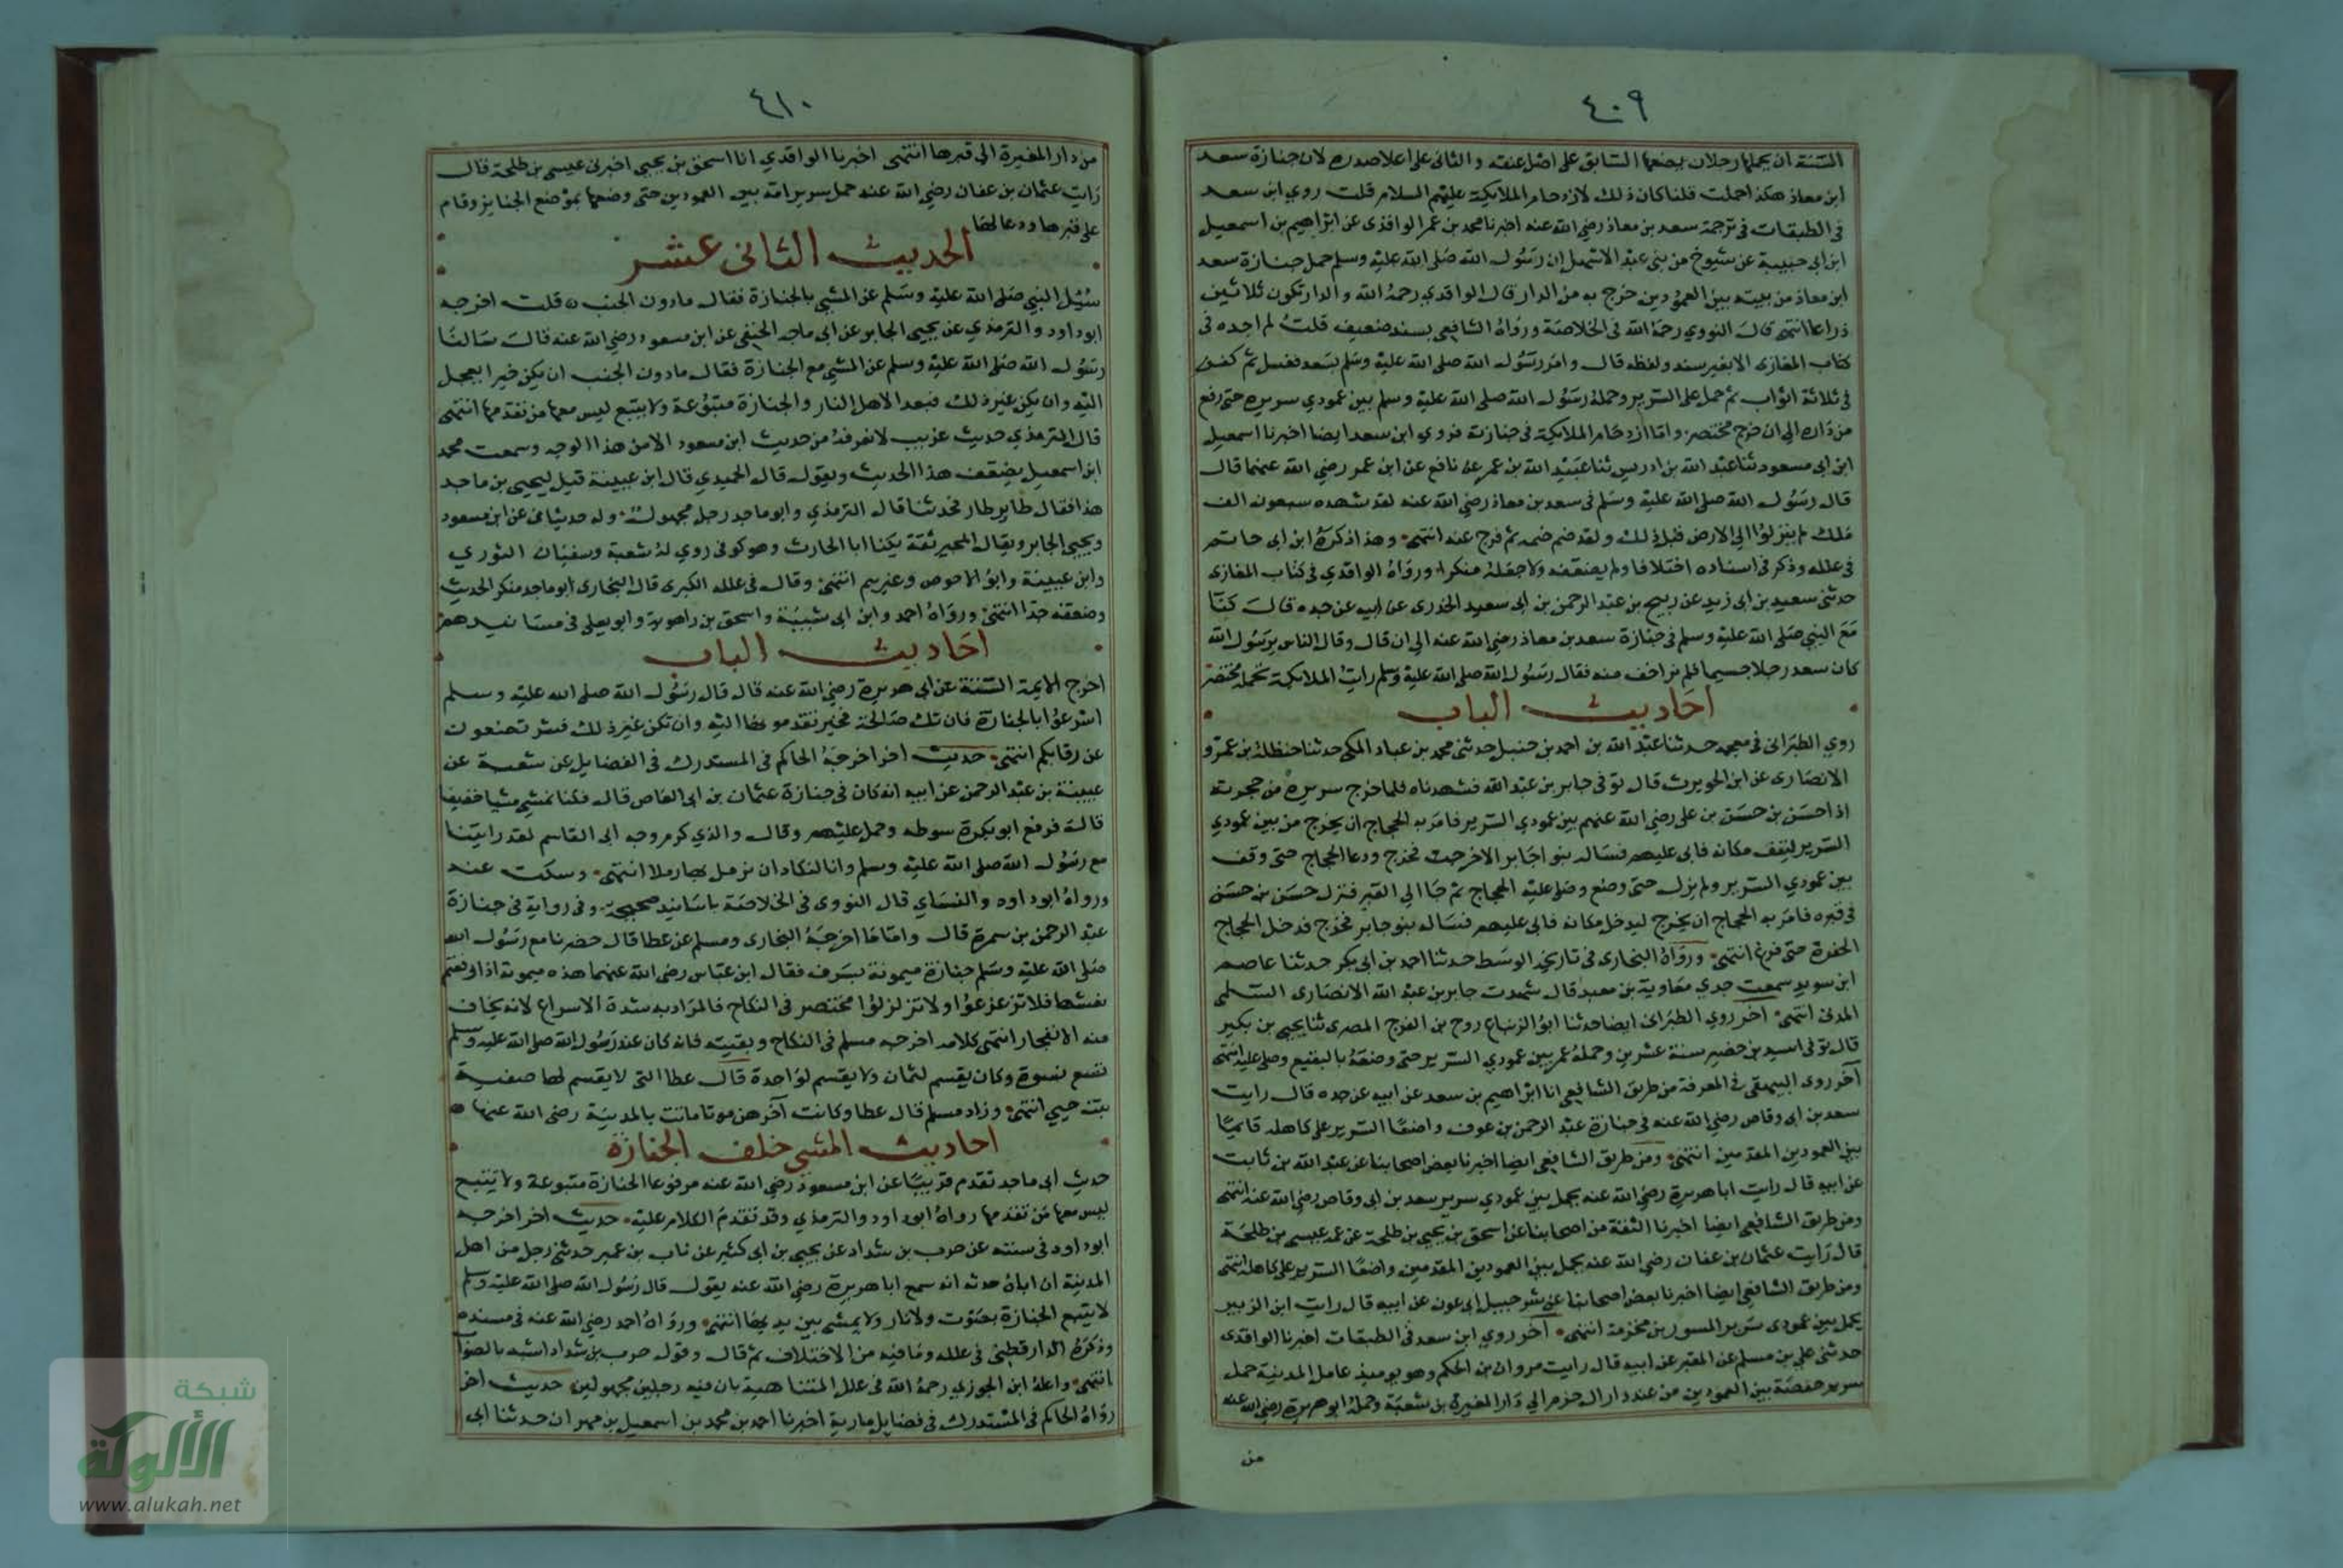 ٤٠٩
السنة ان يحملها رجلان يضعها السابق على اصل عنقه والثاني على اعلا صدره لان جنازة سعد
ابن معاذ هكذا حملت قلنا كان ذلك لازدحام الملايكة عليهم السلام قلت روي ابن سعد
في الطبقات في ترجمة سعد بن معاذ رضي الله عنه اخبرنا محمد بن عمر الواقدى عن ابراهيم بن اسمعيل
ابن ابى حبيبة عن شيوخ من بنى عبد الاشهل ان رسول الله صلى الله عليه وسلم حمل جنازة سعد
ابن معاذ من بيته بين العمودين خرج به من الدار قال الواقدي رحمه الله والدار تكون ثلاثين
ذراعا انتهى قال النووي رحمه الله فى الخلاصة ورواه الشافعي بسند ضعيف قلت لم اجده فى
كتاب المغازى الا بغير سند ولفظه قال وامر رسول الله صلى الله عليه وسلم بسعد فغسل ثم كفن
فى ثلاثة اثواب ثم حمل على السرير وحمله رسول الله صلى الله عليه وسلم بين عمودي سريره حتى رفع
من داره الى ان خرج مختصر واما ازدحام الملايكة فى جنازته فروي ابن سعد ايضا اخبرنا اسمعيل
ابن ابى مسعود ثنا عبد الله بن ادريس ثنا عبيد الله بن عمر عن نافع عن ابن عمر رضي الله عنهما قال
قال رسول الله صلى الله عليه وسلم فى سعد بن معاذ رضي الله عنه لقد شهده سبعون الف
ملك لم ينزلوا الى الارض قبل ذلك ولقد ضم ضمه ثم فرج عنه انتهى وهذا ذكره ابن ابى حاتم
فى علله وذكر فى اسناده اختلافا ولم يضعفه ولا جعله منكرا ورواه الواقدي فى كتاب المغازى
حدثنى سعيد بن ابى زيد عن ربيح بن عبد الرحمن بن ابى سعيد الخدرى عن ابيه عن جده قال كنا
مع النبي صلى الله عليه وسلم فى جنازة سعد بن معاذ رضي الله عنه الى ان قال وقال الناس يرسول الله
كان سعد رجلا جسيما فلم نر اخف منه فقال رسول الله صلى الله عليه وسلم رايت الملايكة تحمله مختصر
احاديث الباب
روي الطبرانى فى معجمه حدثنا عبد الله بن احمد بن حنبل حدثنى محمد بن عباد المكى حدثنا حنظلة بن عمرو
الانصارى عن ابن الحويرث قال توفى جابر بن عبد الله فشهدناه فلما خرج سريره من حجرته
اذا حسن بن حسن بن على رضي الله عنهم بين عمودي السرير فامر به الحجاج ان يخرج من بين عمودي
السرير ليقف مكانه فابى عليهم فساله بنوا جابر الا خرجت فخرج ودعا الحجاج حتى وقف
بين عمودي السرير ولم يزل حتى وضع وصلى عليه الحجاج ثم جا الى القبر فنزل حسن بن حسن
فى قبره فامر به الحجاج ان يخرج ليدخل مكانه فابى عليهم فساله بنو جابر فخرج فدخل الحجاج
الحفرة حتى فرغ انتهى ورواه البخارى فى تاريخه الوسط حدثنا احمد بن ابى بكر حدثنا عاصم
ابن سويد سمعت جدي معاوية بن معبد قال شهدت جابر بن عبد الله الانصارى السلمى
المدنى انتهى اخر روي الطبرانى ايضا حدثنا ابو الزنباع روح بن الفرج المصرى ثنا يحيى بن بكير
قال توفى اسيد بن حضير سنة عشرين وحمله عمر بين عمودي السرير حتى وضعه بالبقيع وصلى عليه انتهى
آخر روى البيهقى فى المعرفة من طريق الشافعى انا ابراهيم بن سعد عن ابيه عن جده قال رايت
سعد بن ابى وقاص رضي الله عنه فى جنازة عبد الرحمن بن عوف واضعا السرير على كاهله قائما
بين العمودين المقدمين انتهى ومن طريق الشافعى ايضا اخبرنا بعض اصحابنا عن عبد الله بن ثابت
عن ابيه قال رايت ابا هريرة رضي الله عنه يحمل بين عمودي سرير سعد بن ابى وقاص رضي الله عنه انتهى
ومن طريق الشافعى ايضا اخبرنا الثقة من اصحابنا عن اسحق بن يحيى بن طلحة عن عمه عيسى بن طلحة
قال رايت عثمان بن عفان رضي الله عنه يحمل بين العمودين المقدمين واضعا السرير على كاهله انتهى
ومن طريق الشافعى ايضا اخبرنا بعض اصحابنا عن شرحبيل بن ابى عون عن ابيه قال رايت ابن الزبير
يحمل بين عمودى سرير المسور بن مخرمة انتهى آخر روي ابن سعد فى الطبقات اخبرنا الواقدى
حدثنى على بن مسلم عن المقبرى عن ابيه قال رايت مروان بن الحكم وهو يوميذ عامل المدينة حمل
سرير حفصة بين العمودين من عند دار ال حزم الى دار المغيرة بن شعبة وحمله ابو هريرة رضي الله عنه
من
٤١٠
من دار المغيرة الى قبرها انتهى اخبرنا الواقدي انا اسحق بن يحيى اخبرنى عيسى بن طلحة قال
رايت عثمان بن عفان رضي الله عنه حمل سرير امه بين العمودين حتى وضعها بموضع الجنايز وقام
على قبرها ودعا لها
الحديث الثانى عشر
سئل النبي صلى الله عليه وسلم عن المشي بالجنازة فقال مادون الخبب قلت اخرجه
ابو داود والترمذي عن يحيى الجابر عن ابى ماجد الحنفى عن ابن مسعود رضي الله عنه قال سالنا
رسول الله صلى الله عليه وسلم عن المشي مع الجنازة فقال مادون الخبب ان يكن خيرا يعجل
اليه وان يكن غير ذلك فبعدا لاهل النار والجنازة متبوعة ولا يتبع ليس معها من تقدمها انتهى
قال الترمذي حديث غريب لا نعرفه من حديث ابن مسعود الا من هذا الوجه وسمعت محمد
ابن اسمعيل يضعف هذا الحديث ويقول قال الحميدي قال ابن عيينة قيل ليحيى بن ماجد
هذا فقال طاير طار فحدثنا قال الترمذي وابو ماجد رجل مجهول وله حديثان عن ابن مسعود
ويحيى الجابر ويقال المجبر ثقة يكنا ابا الحارث وهو كوفى روي له شعبة وسفيان الثوري
وابن عيينة وابو الاحوص وغيرهم انتهى وقال فى علله الكبرى قال البخارى ابو ماجد منكر الحديث
وضعفه جدا انتهى ورواه احمد وابن ابى شيبة واسحق بن راهويه وابو يعلى فى مسانيدهم
احاديث الباب
اخرج الايمة الستة عن ابى هريرة رضي الله عنه قال قال رسول الله صلى الله عليه وسلم
اسرعوا بالجنازة فان تك صالحة فخير تقدموها اليه وان تكن غير ذلك فشر تضعونه
عن رقابكم انتهى حديث اخر اخرجه الحاكم فى المستدرك فى الفضايل عن شعبة عن
عيينة بن عبد الرحمن عن ابيه انه كان فى جنازة عثمان بن ابى العاص قال فكنا نمشى مشيا خفيفا
قال فرفع ابو بكرة سوطه وحمل عليهم وقال والذي كرم وجه ابى القاسم لقد رايتنا
مع رسول الله صلى الله عليه وسلم وانا لنكاد ان نرمل بها رملا انتهى وسكت عنه
ورواه ابو داود والنساي قال النووى فى الخلاصة باسانيد صحيحة وفى رواية فى جنازة
عبد الرحمن بن سمرة قال واما ما اخرجه البخارى ومسلم عن عطا قال حضرنا مع رسول الله
صلى الله عليه وسلم جنازة ميمونة بسرف فقال ابن عباس رضي الله عنهما هذه ميمونة اذا رفعتم
نعشها فلا تزعزعوا ولا تزلزلوا مختصر فى النكاح فالمراد به شدة الاسراع لانه يخاف
منه الانفجار انتهى كلامه اخرجه مسلم فى النكاح وبقيته فانه كان عند رسول الله صلى الله عليه وسلم
تسع نسوة وكان يقسم لثمان ولا يقسم لواحدة قال عطا التى لا يقسم لها صفية
بنت حيي انتهى وزاد مسلم قال عطا وكانت آخرهن موتا ماتت بالمدينة رضي الله عنها
احاديث المشي خلف الجنازة
حديث ابى ماجد تقدم قريبا عن ابن مسعود رضي الله عنه مرفوعا الجنازة متبوعة ولا يتبع
ليس معها من تقدمها رواه ابو داود والترمذي وقد تقدم الكلام عليه حديث اخر اخرجه
ابو داود فى سننه عن حرب بن شداد عن يحيى بن ابى كثير عن ناب بن عمير حدثنى رجل من اهل
المدينة ان اباه حدثه انه سمع ابا هريرة رضي الله عنه يقول قال رسول الله صلى الله عليه وسلم
لا يتبع الجنازة بصوت ولا نار ولا يمشى بين يديها انتهى ورواه احمد رضي الله عنه فى مسنده
وذكره الدارقطنى فى علله وما فيه من الاختلاف ثم قال وقول حرب بن شداد اشبه بالصواب
انتهى واعله ابن الجوزي رحمه الله فى علل المتناهية بان فيه رجلين مجهولين حديث اخر
رواه الحاكم فى المستدرك فى فضايل مارية اخبرنا احمد بن محمد بن اسمعيل بن مهران حدثنا ابى
شبكة
الألوكة
www.alukah.net